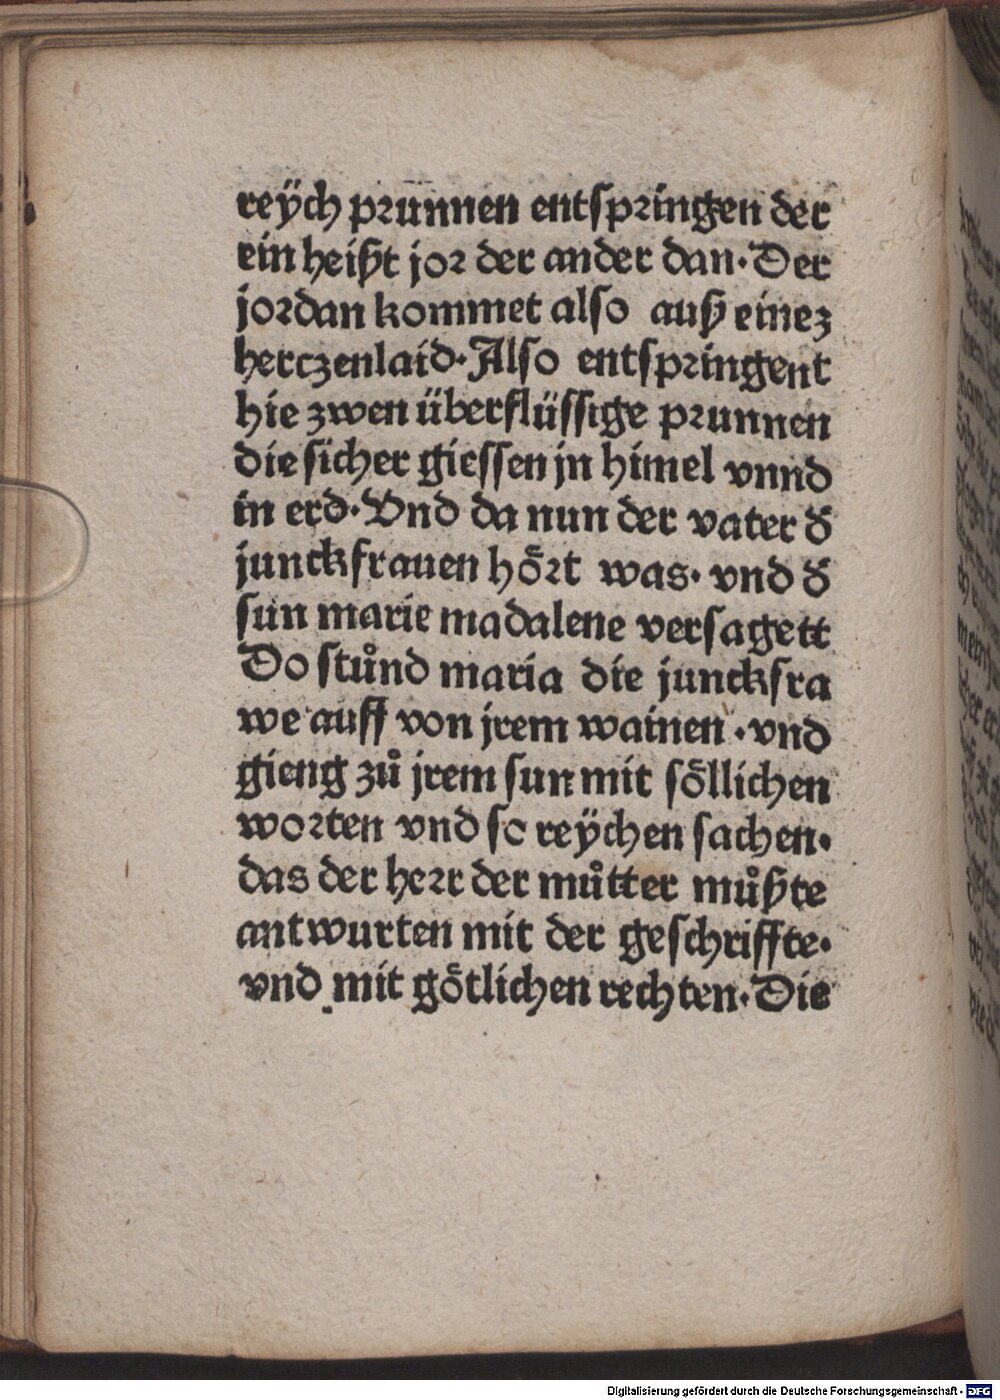 reÿch prunnen entspringen der
ein heißt jor der ander dan· Der
jordan kommet also auß einez
herczenlaid· Also entspringent
hie zwen überflüssige prunnen
die sicher giessen jn himel vnnd
in erd· Vnd da nun der vater d̕
junckfrauen hoͤrt was· vnd d̕
sun marie madalene versagett
Do stuͦnd maria die junckfra
we auff von jrem wainen · vnd
gieng zuͦ jrem sun mit soͤllichen
worten vnd so reÿchen sachen·
das der herr der muͦtter muͦßte
antwurten mit der geschriffte·
vnd mit goͤtlichen rechten· Die
Digitalisierung gefördert durch die Deutsche Forschungsgemeinschaft - DFG